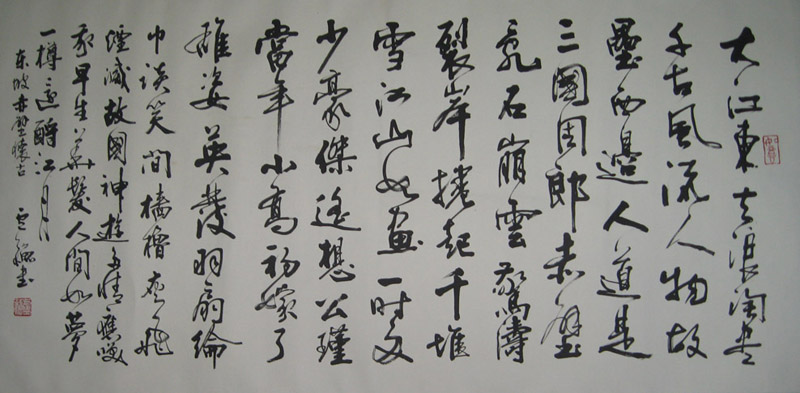 大江東去浪淘盡
千古風流人物故
壘西邊人道是
三國周郎赤壁
亂石崩雲驚濤
裂岸捲起千堆
雪江山如畫一時多
少豪傑遙想公瑾
當年小喬初嫁了
雄姿英發羽扇綸
巾談笑間檣櫓灰飛
煙滅故國神遊多情應笑
我早生華髮人間如夢
一樽還酹江月
東坡赤壁懷古 書